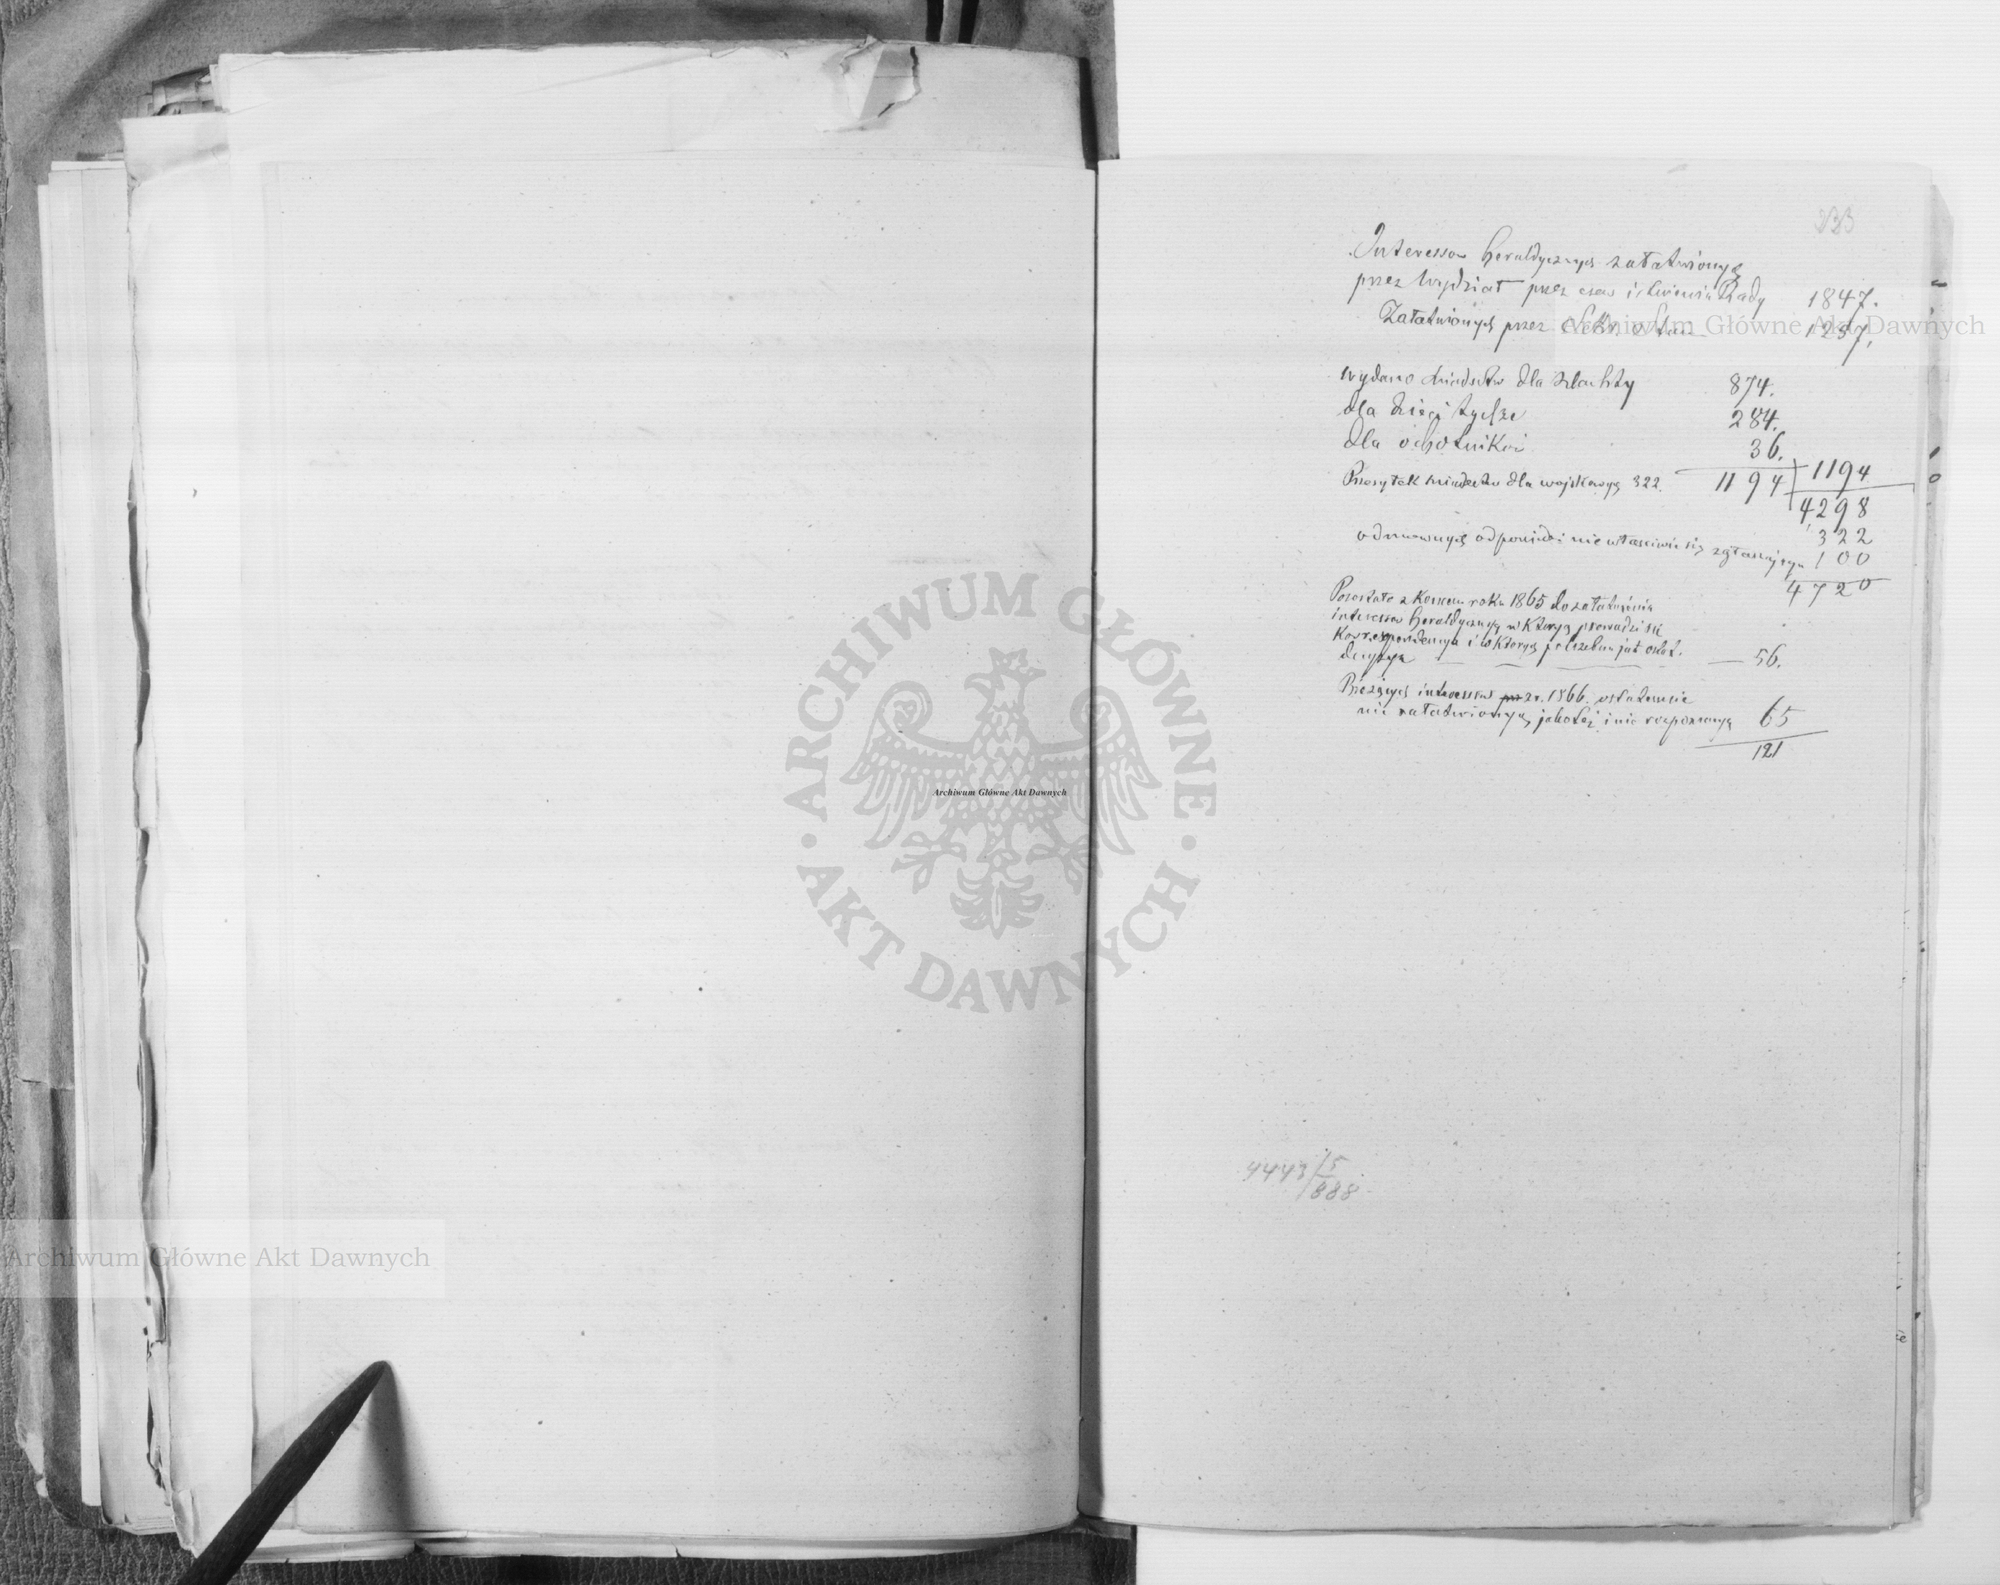 233
Interessow heraldycznych załatwionych
przez Wydział przez czas istnienia Rady 1847.
Załatwionych przez 1257,
wydano świadectw dla szlachty 874.
dla dzieci tychże 284.
dla ochotników 36.
1194 1194
Przesyłek świadectw dla wojskowych 322.
4298
322
odmownych odpowiedzi niewłaściwie się zgłaszającym 100
4720
Pozostało z końcem roku 1865 do załatwienia
interessów heraldycznych w których prowadzi się
Korrespondencya i w których potrzebna jest ostat.
decyzya — 56.
Bieżących interessów z r. 1866. ostatecznie
nie załatwionych jakoteż i nie rozpoznanych 65
121
4443 5
888
Archiwum Główne Akt Dawnych
ARCHIWUM GŁÓWNE
AKT DAWNYCH
Archiwum Główne Akt Dawnych
Archiwum Główne Akt Dawnych